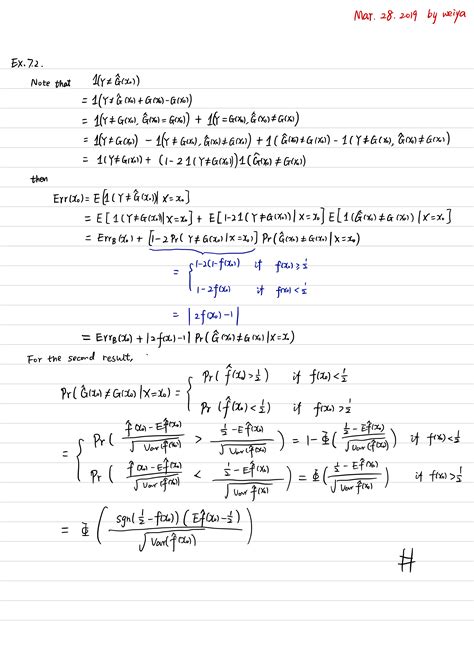 Mar. 28. 2019 by weiya
Ex. 7.2.
Note that 1(Y≠Ĝ(x₀))
= 1(Y≠Ĝ(x₀)+G(x₀)-G(x₀))
= 1(Y≠G(x₀), Ĝ(x₀)=G(x₀)) + 1(Y=G(x₀), Ĝ(x₀)≠G(x₀))
= 1(Y≠G(x₀)) - 1(Y≠G(x₀), Ĝ(x₀)≠G(x₀)) + 1(Ĝ(x₀)≠G(x₀)) - 1(Y≠G(x₀), Ĝ(x₀)≠G(x₀))
= 1(Y≠G(x₀)) + (1-2 1(Y≠G(x₀))) 1(Ĝ(x₀)≠G(x₀))
then
Err(x₀) = E[1(Y≠Ĝ(x₀))|X=x₀]
= E[1(Y≠G(x₀))|X=x₀] + E[1-2 1(Y≠G(x₀))|X=x₀] E[1(Ĝ(x₀)≠G(x₀))|X=x₀]
= Err_B(x₀) + [1-2Pr(Y≠G(x₀)|X=x₀)] Pr(Ĝ(x₀)≠G(x₀)|X=x₀)
= { 1-2(1-f(x₀)) if f(x₀)≥½
1-2f(x₀) if f(x₀)<½
= |2f(x₀)-1|
= Err_B(x₀) + |2f(x₀)-1| Pr(Ĝ(x₀)≠G(x₀)|X=x₀)
For the second result,
Pr(Ĝ(x₀)≠G(x₀)|X=x₀) = { Pr(f̂(x₀)>½) if f(x₀)<½
Pr(f̂(x₀)<½) if f(x₀)>½
= { Pr( (f̂(x₀)-Ef̂(x₀))/√Var(f̂(x₀)) > (½-Ef̂(x₀))/√Var(f̂(x₀)) ) = 1-Φ( (½-Ef̂(x₀))/√Var(f̂(x₀)) ) if f(x₀)<½
Pr( (f̂(x₀)-Ef̂(x₀))/√Var f̂(x₀) < (½-Ef̂(x₀))/√Var f̂(x₀) ) = Φ( (½-Ef̂(x₀))/√Var f̂(x₀) ) if f(x₀)>½
= Φ( sgn(½-f(x₀)) (Ef̂(x₀)-½)/√Var(f̂(x₀)) )
#